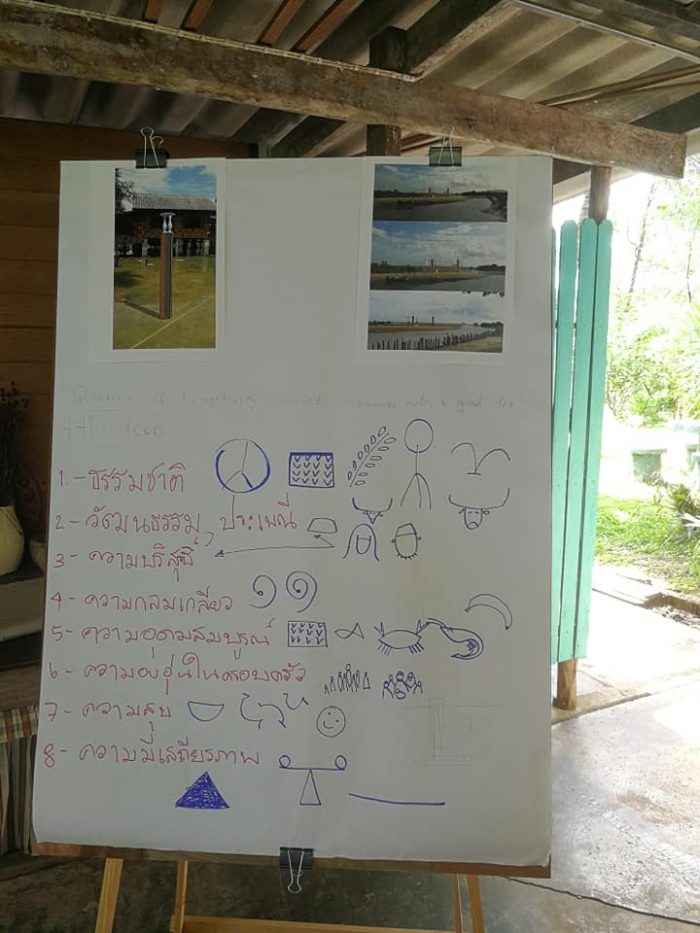 1. - ธรรมชาติ
2 - วัฒนธรรม, ประเพณี
3 - ความบริสุทธิ์
4 - ความกลมเกลียว
5 - ความอุดมสมบูรณ์
6 - ความอบอุ่นในครอบครัว
7 - ความสุข
8 - ความมีเสถียรภาพ